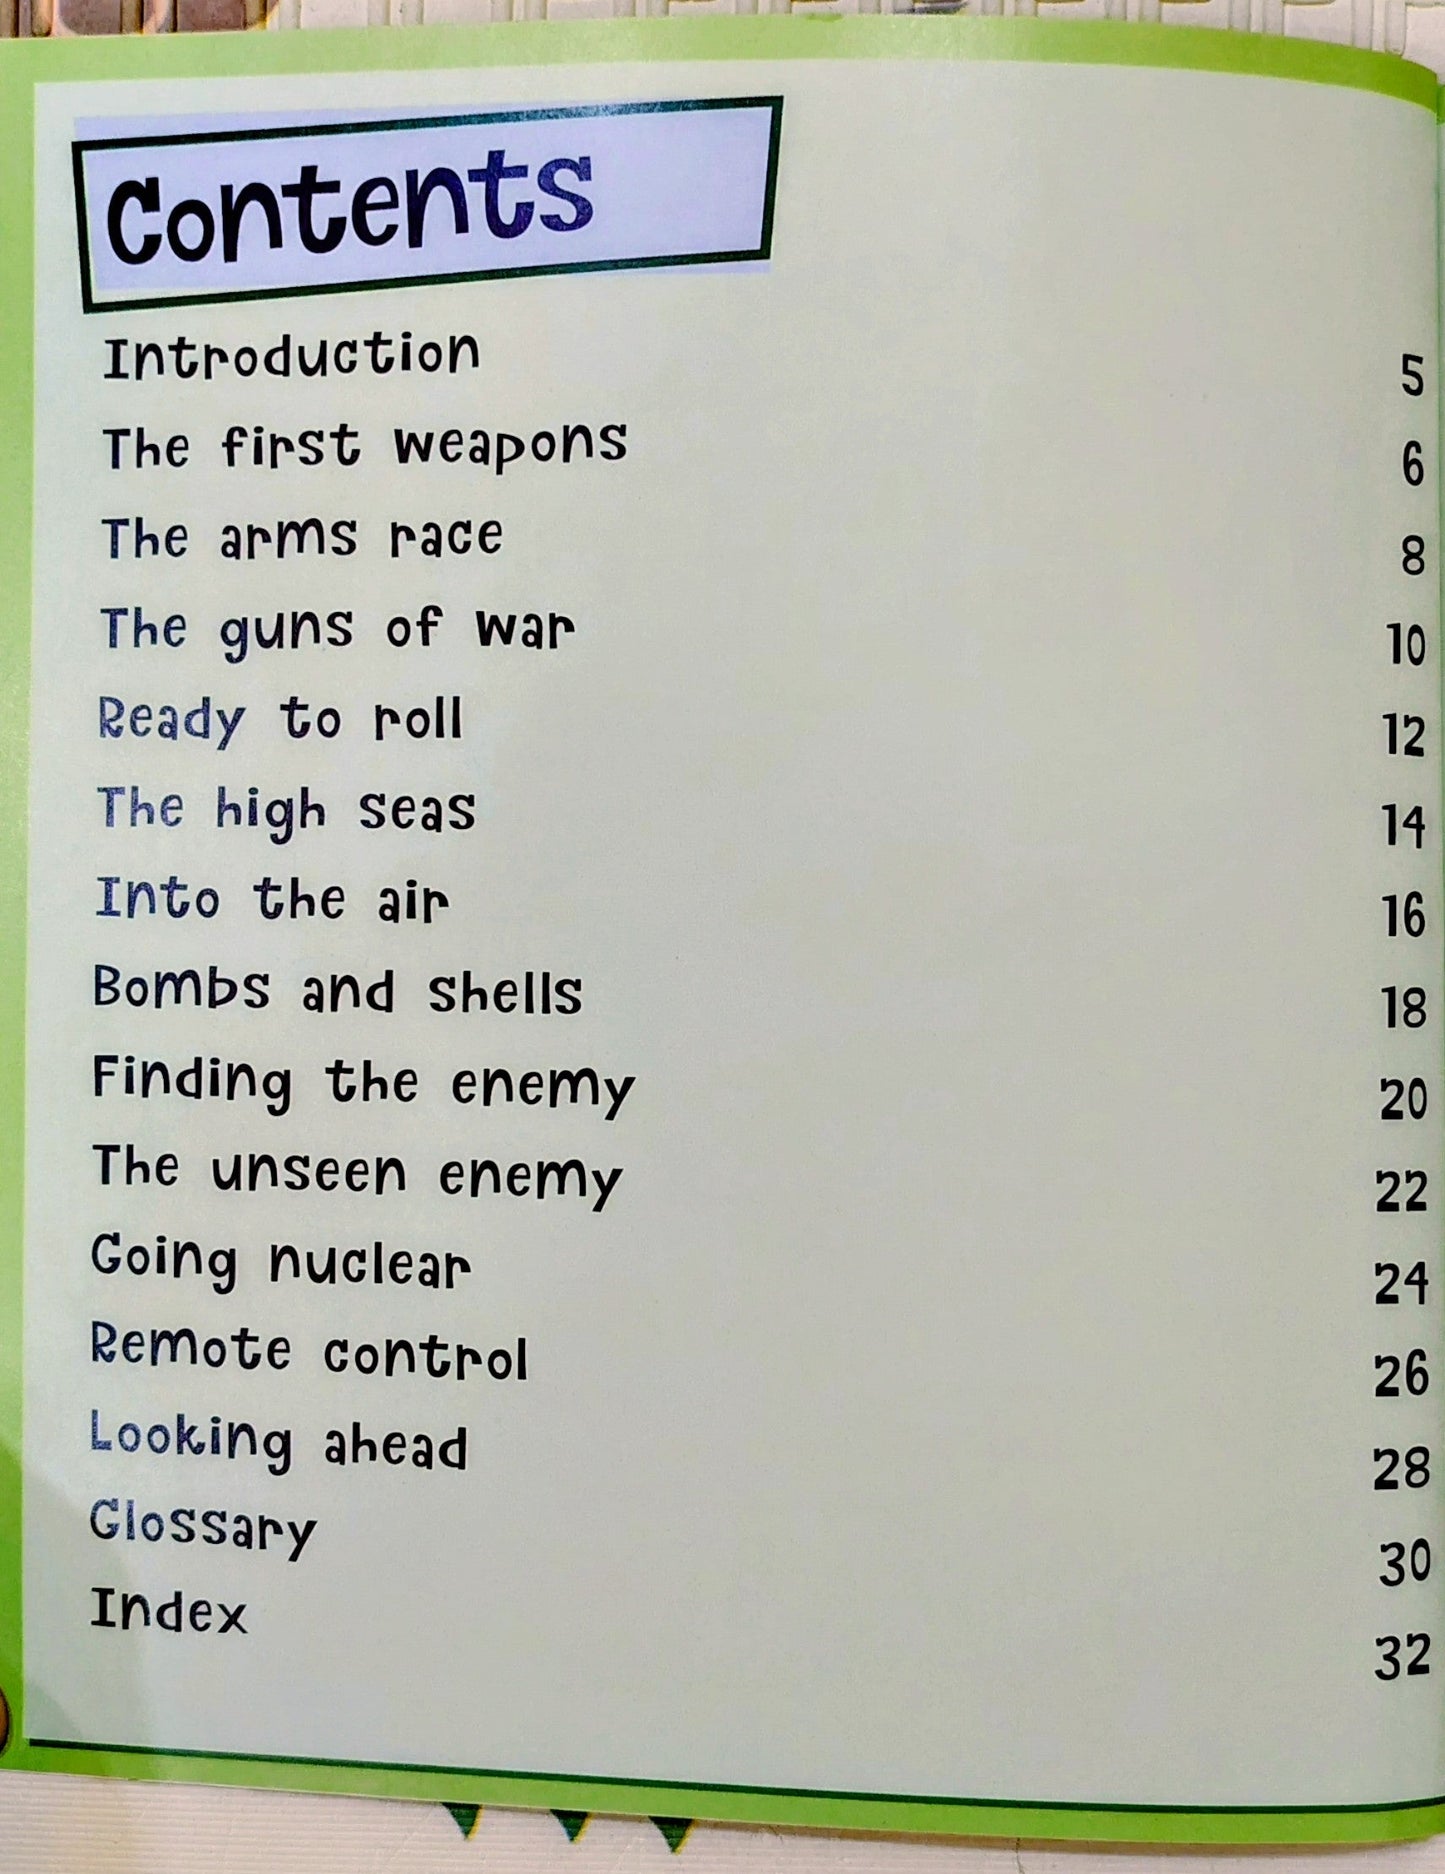 Contents
Introduction 5
The first weapons 6
The arms race 8
The guns of war 10
Ready to roll 12
The high seas 14
Into the air 16
Bombs and shells 18
Finding the enemy 20
The unseen enemy 22
Going nuclear 24
Remote control 26
Looking ahead 28
Glossary 30
Index 32